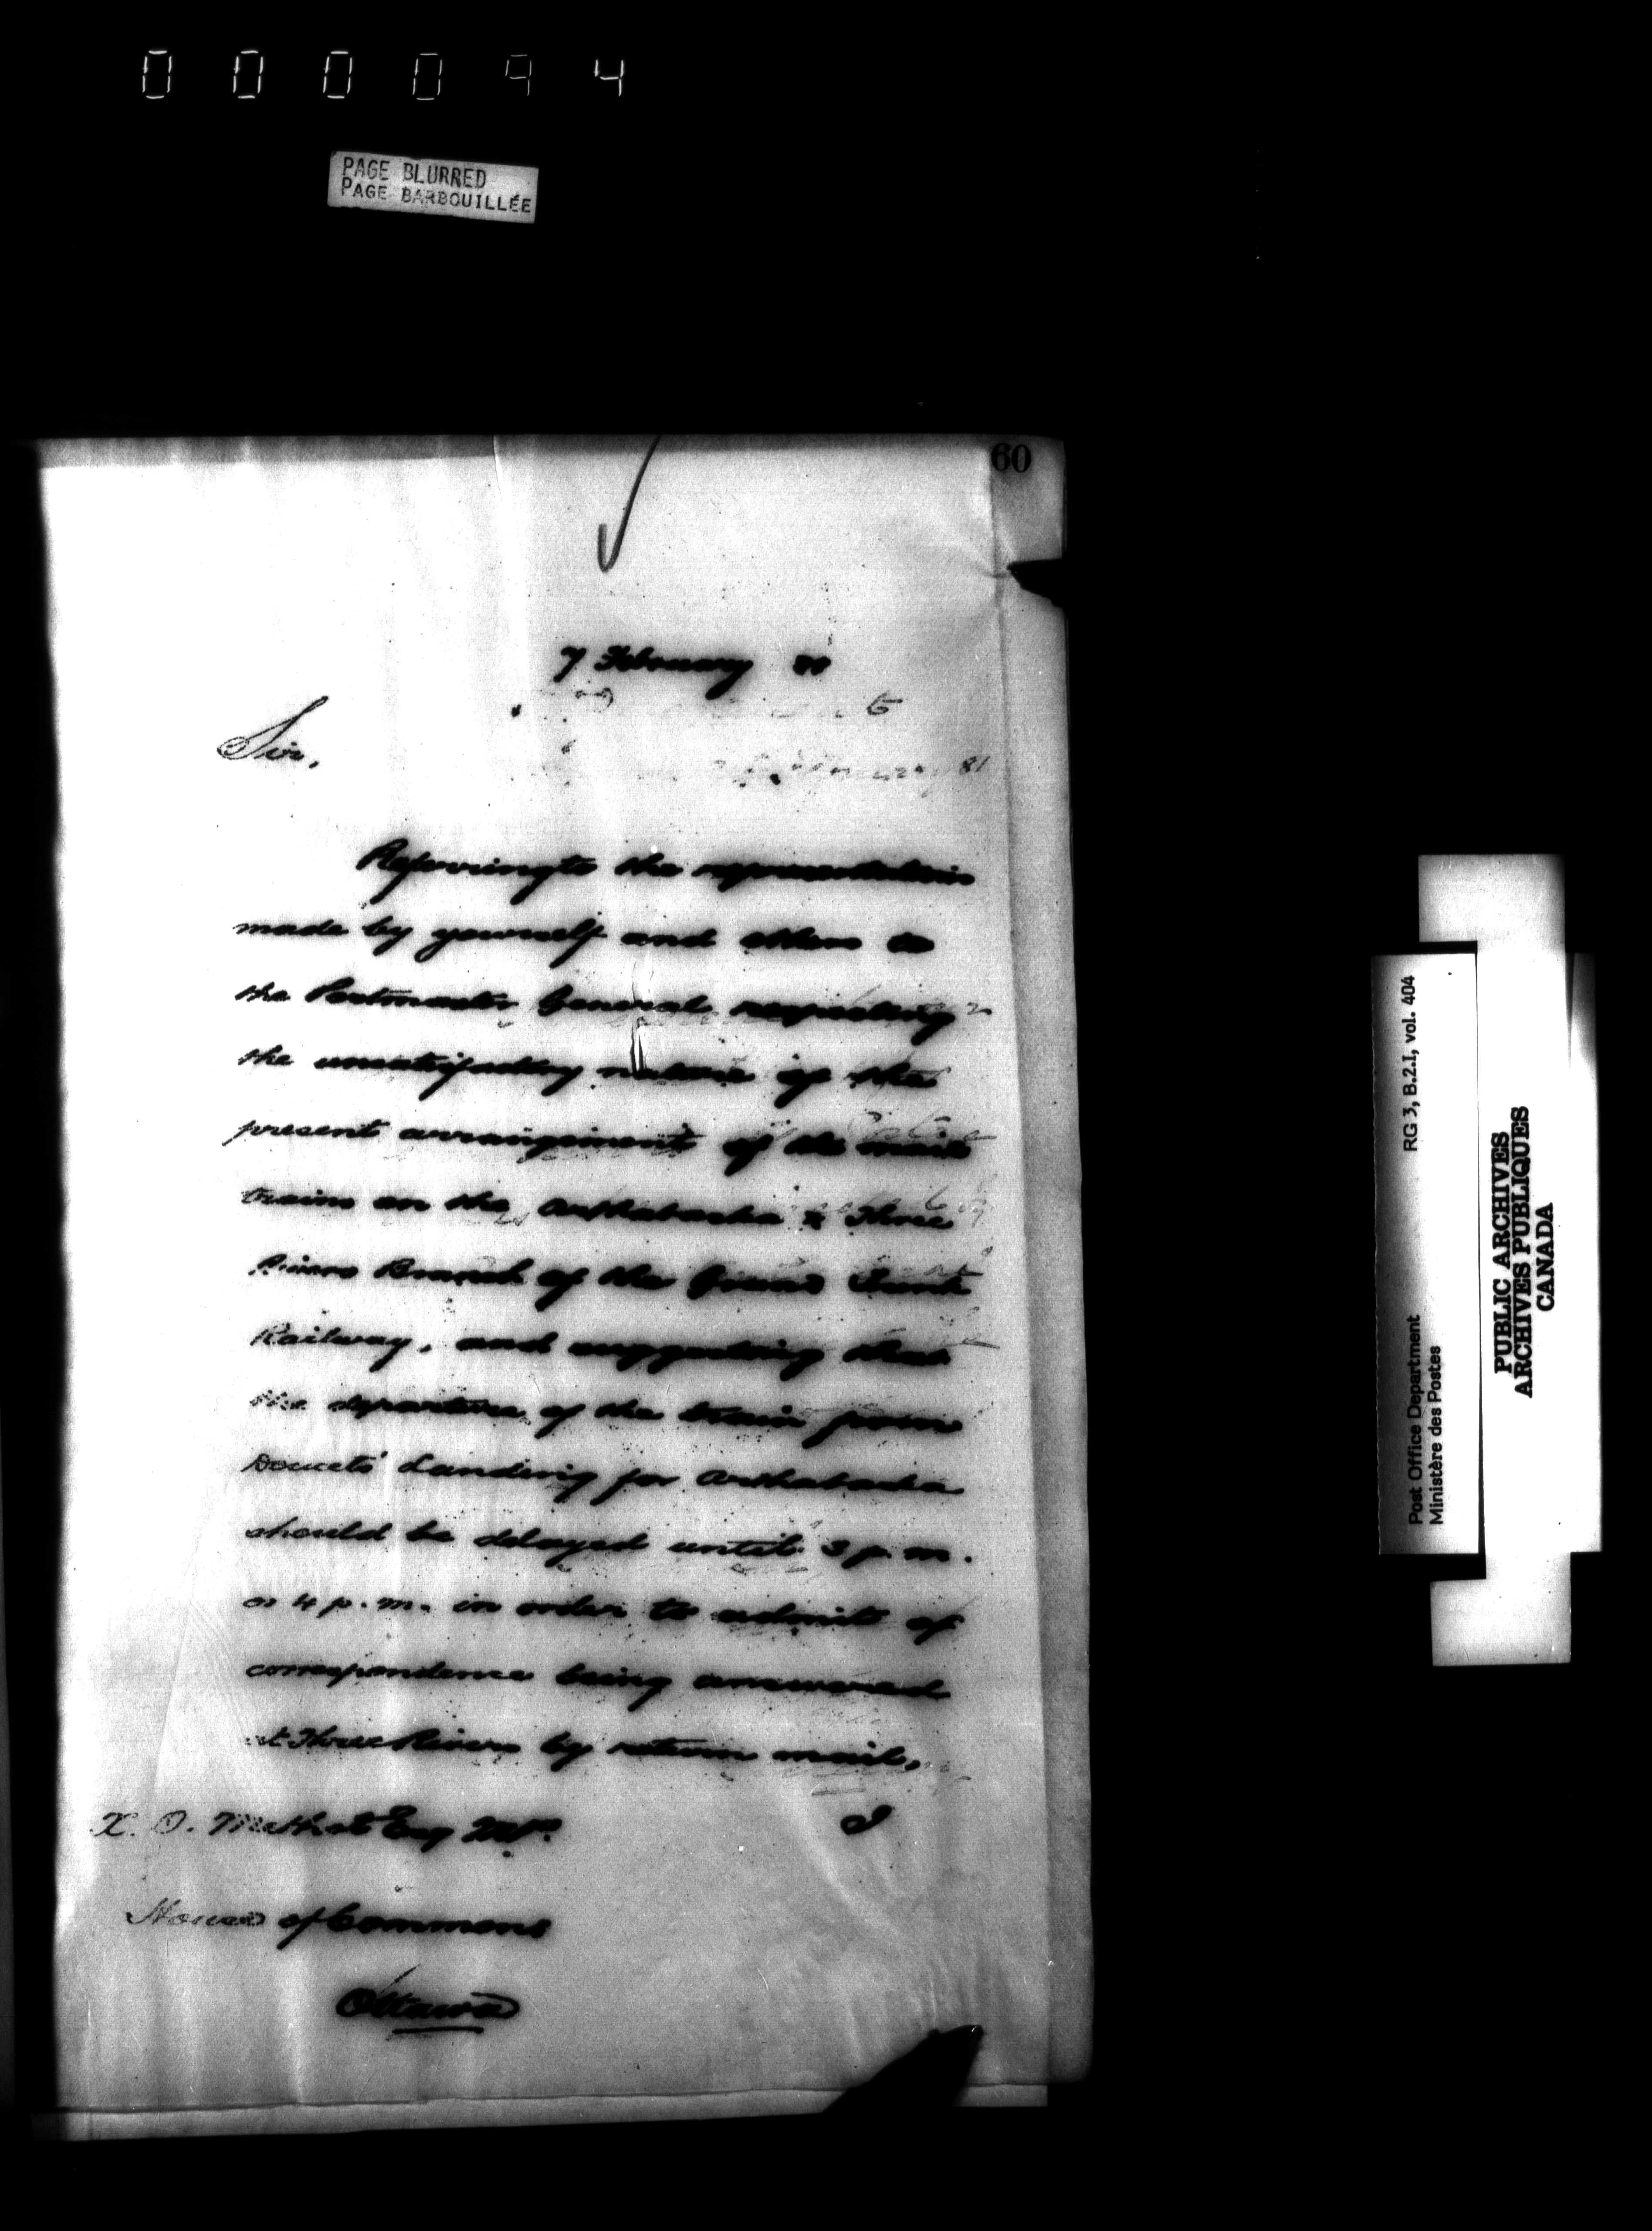 000094
PAGE BLURRED
PAGE BARBOUILLÉE
60
7 February 81
Sir,
81
Referring to the representations
made by yourself and others to
the Postmaster General respecting
the unsatisfactory nature of the
present arrangements of the mail
trains on the Arthabaska & Three
Rivers Branch of the Grand Trunk
Railway, and suggesting that
the departure of the train from
Doucets' Landing for Arthabaska
should be delayed until 3 p.m.
or 4 p.m. in order to admit of
correspondence being answered
at Three Rivers by return mail,
I
X. O. Methot Esq M.P.
House of Commons
Ottawa
Post Office Department RG 3, B.2.I, vol. 404
Ministère des Postes
PUBLIC ARCHIVES
ARCHIVES PUBLIQUES
CANADA